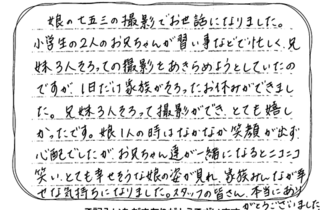 娘の七五三の撮影でお世話になりました。
小学生の2人のお兄ちゃんが習い事などで忙しく、兄
妹3人そろっての撮影をあきらめようとしていたの
ですが、1日だけ家族がそろったお休みができまし
た。兄妹3人そろって撮影ができ、とても嬉し
かったです。娘1人の時はなかなか笑顔が出ず
心配でしたが、お兄ちゃん達が一緒になるとニコニコ
笑い、とても幸せそうな娘の姿が見れ、家族みんなが幸
せな気持ちになりました。スタッフの皆さん、本当にあり
がとうございました。